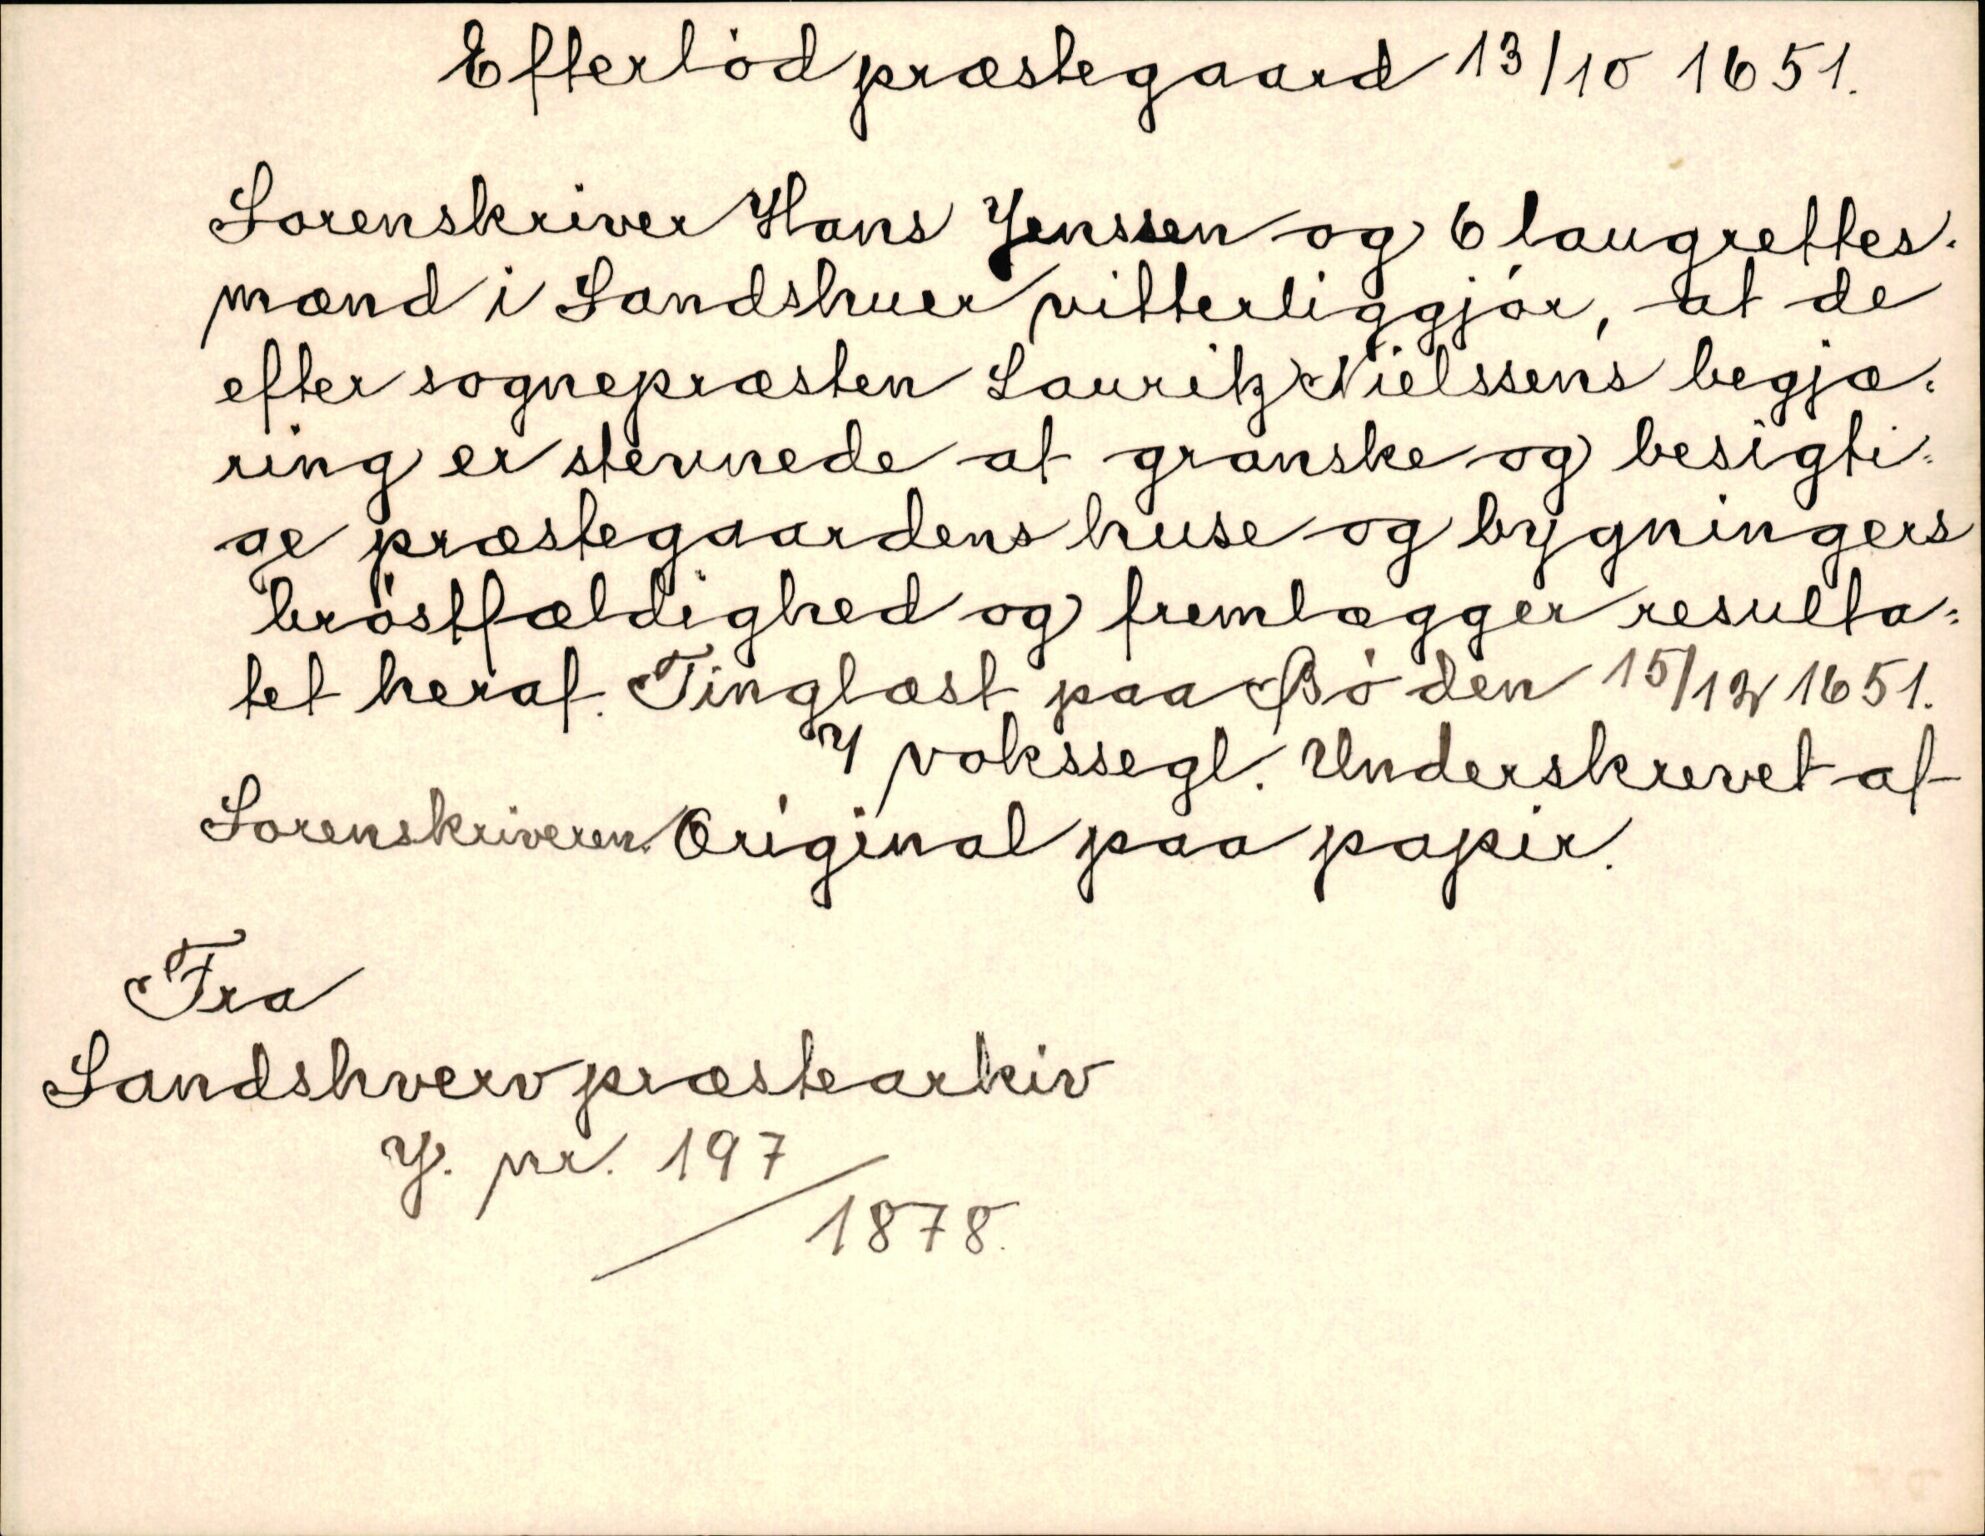 Efterlöd præstegaard 13/10 1651.
Sorenskriver Hans Jenssen og 6 laugrettes-
mænd i Sandshuer vitterliggjör, at de
efter sognepræsten Lauritz Nielssens begjæ-
ring er stevnede at granske og besigti-
ge præstegaardens huse og bygningers
bröstfældighed og fremlægger resulta-
tet heraf. Tinglæst paa Bö den 15/12 1651.
7 vokssegl. Underskrevet af
Sorenskriveren. Original paa papir.
Fra
Sandshverv præstearkiv
J. nr. 197/1878.